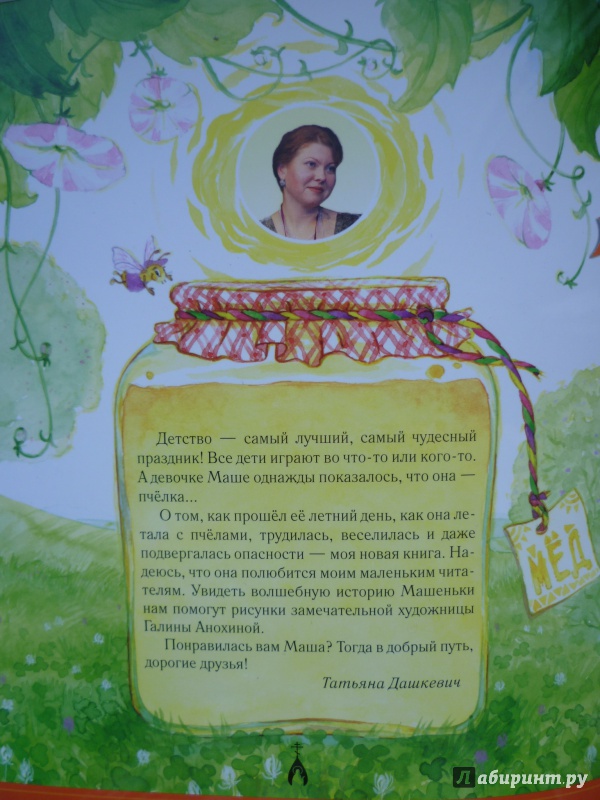 Детство — самый лучший, самый чудесный
праздник! Все дети играют во что-то или кого-то.
А девочке Маше однажды показалось, что она —
пчёлка...
О том, как прошёл её летний день, как она ле-
тала с пчёлами, трудилась, веселилась и даже
подвергалась опасности — моя новая книга. На-
деюсь, что она полюбится моим маленьким чита-
телям. Увидеть волшебную историю Машеньки
нам помогут рисунки замечательной художницы
Галины Анохиной.
Понравилась вам Маша? Тогда в добрый путь,
дорогие друзья!
Татьяна Дашкевич
МЁД
Лабиринт.ру